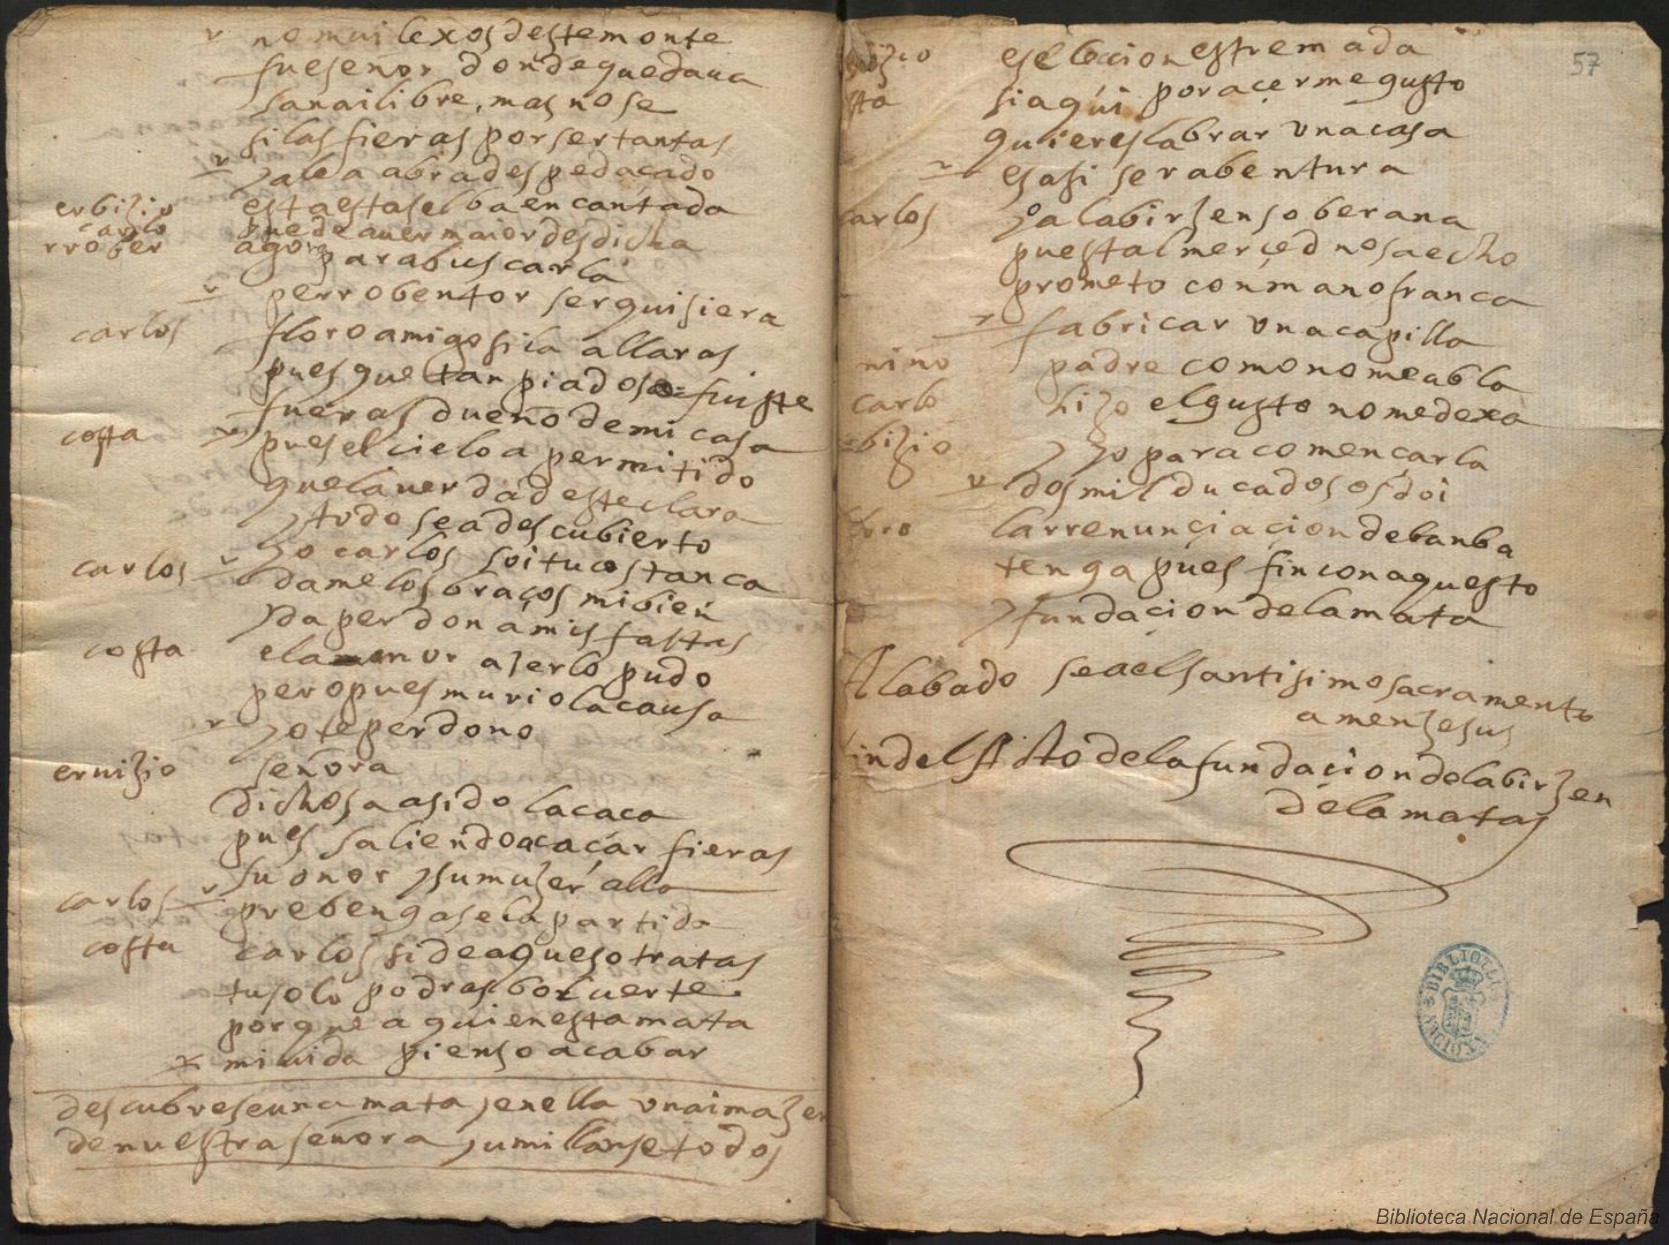 no mui lexos deste monte
fue señor donde quedaua
sana i libre, mas no se
si las fieras por ser tantas
ya la abra despedaçado
erbiçio esta esta selba encantada
carlo puede auer maior desdicha
rrober agora
para buscarla
perrobentor ser quisiera
carlos floro amigo si la allaras
pues que tan piadoso fuiste
fueras dueño de mi casa
costa pues el cielo a permitido
que la uerdad este clara
y todo sea descubierto
yo carlos soi tu costança
carlos dame los braços mi bien
y da perdon a mis faltas
costa el amor açerlo pudo
pero pues murio la causa
yo te perdono
eruiçio señora
dichosa a sido la caça
pues saliendo a caçar fieras
su onor y su muger alla
carlos prebengase la partida
costa carlos si de aqueso tratas
tu solo podras boluerte
porque aqui en esta mata
mi uida pienso acabar
descubrese una mata y en ella una imagen
de nuestra señora y umillanse todos
57
es elecion estremada
sta si aqui por açerme gusto
quieres labrar una casa
esa si sera bentura
carlos ya la birgen soberana
pues tal merçed nos a echo
prometo con mano franca
fabricar una capilla
nino padre como no me abla
carlo hijo el gusto no me dexa
biçio y yo para començarla
dos mil ducados os doi
la rrenunçiaçion de banba
tenga pues fin con aquesto
y fundaçion de la mata
Alabado sea el santisimo sacramento
amen Jesus
fin del Auto de la fundaçion de la birgen
de la matas
BIBLIOTECA NACIONAL
Biblioteca Nacional de España